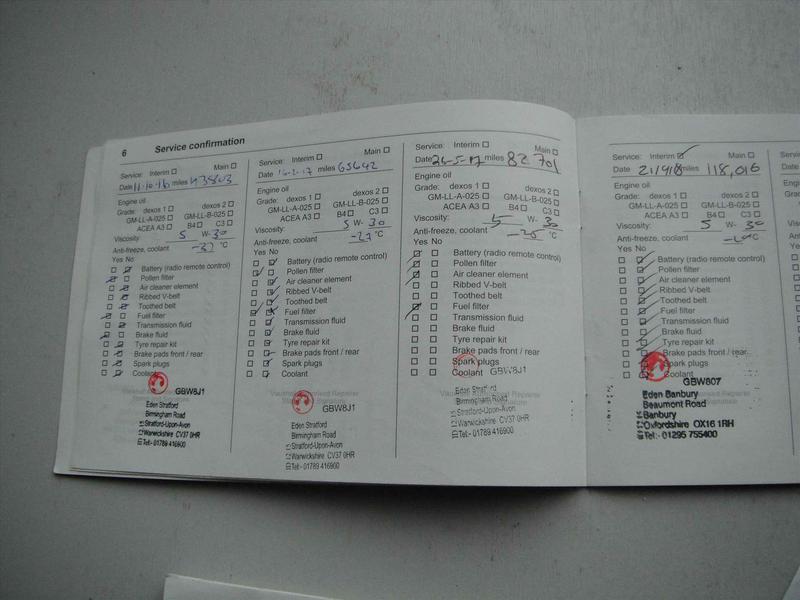 6 Service confirmation
Service: Interim Main
Date 11-10-16 miles 43803
Engine oil
Grade: dexos 1 dexos 2
GM-LL-A-025 GM-LL-B-025
ACEA A3 B4 C3
Viscosity: 5 W- 30
Anti-freeze, coolant -37 °C
Yes No
Battery (radio remote control)
Pollen filter
Air cleaner element
Ribbed V-belt
Toothed belt
Fuel filter
Transmission fluid
Brake fluid
Tyre repair kit
Brake pads front / rear
Spark plugs
Coolant
GBW8J1
Eden Stratford
Birmingham Road
Stratford-Upon-Avon
Warwickshire CV37 0HR
Tel:- 01789 416900
Service: Interim Main
Date miles 65642
Engine oil
Grade: dexos 1 dexos 2
GM-LL-A-025 GM-LL-B-025
ACEA A3 B4 C3
Viscosity: 5 W- 30
Anti-freeze, coolant -27 °C
Yes No
Battery (radio remote control)
Pollen filter
Air cleaner element
Ribbed V-belt
Toothed belt
Fuel filter
Transmission fluid
Brake fluid
Tyre repair kit
Brake pads front / rear
Spark plugs
Coolant
GBW8J1
Eden Stratford
Birmingham Road
Stratford-Upon-Avon
Warwickshire CV37 0HR
Tel:- 01789 416900
Service: Interim Main
Date 26-5-17 miles 82701
Engine oil
Grade: dexos 1 dexos 2
GM-LL-A-025 GM-LL-B-025
ACEA A3 B4 C3
Viscosity: 5 W- 30
Anti-freeze, coolant °C
Yes No
Battery (radio remote control)
Pollen filter
Air cleaner element
Ribbed V-belt
Toothed belt
Fuel filter
Transmission fluid
Brake fluid
Tyre repair kit
Brake pads front / rear
Spark plugs
Coolant GBW8J1
Eden Stratford
Birmingham Road
Stratford-Upon-Avon
Warwickshire CV37 0HR
Tel:- 01789 416900
Service: Interim Main
Date miles 118,016
Engine oil
Grade: dexos 1 dexos 2
GM-LL-A-025 GM-LL-B-025
ACEA A3 B4 C3
Viscosity: 5 W- 30
Anti-freeze, coolant °C
Yes No
Battery (radio remote control)
Pollen filter
Air cleaner element
Ribbed V-belt
Toothed belt
Fuel filter
Transmission fluid
Brake fluid
Tyre repair kit
Brake pads front / rear
Spark plugs
Coolant
GBW807
Eden Banbury
Beaumont Road
Banbury
Oxfordshire OX16 1RH
Tel:- 01295 755400